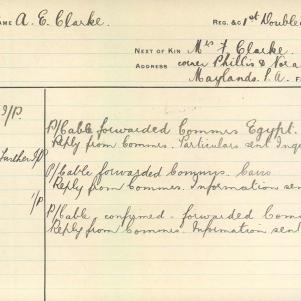 NAME A. E. Clarke. REG. &c 1st Double
NEXT OF KIN Mrs F Clarke.
ADDRESS corner Phillis & Nora
Maylands. P.A. F
P/Cable forwarded Commrs Egypt.
Reply from Commrs. Particulars sent Inq
Further
P/Cable forwarded Commrs. Cairo
Reply from Commrs. Information sen
P/Cable confirmed - forwarded Com
Reply from Commrs. Information sent